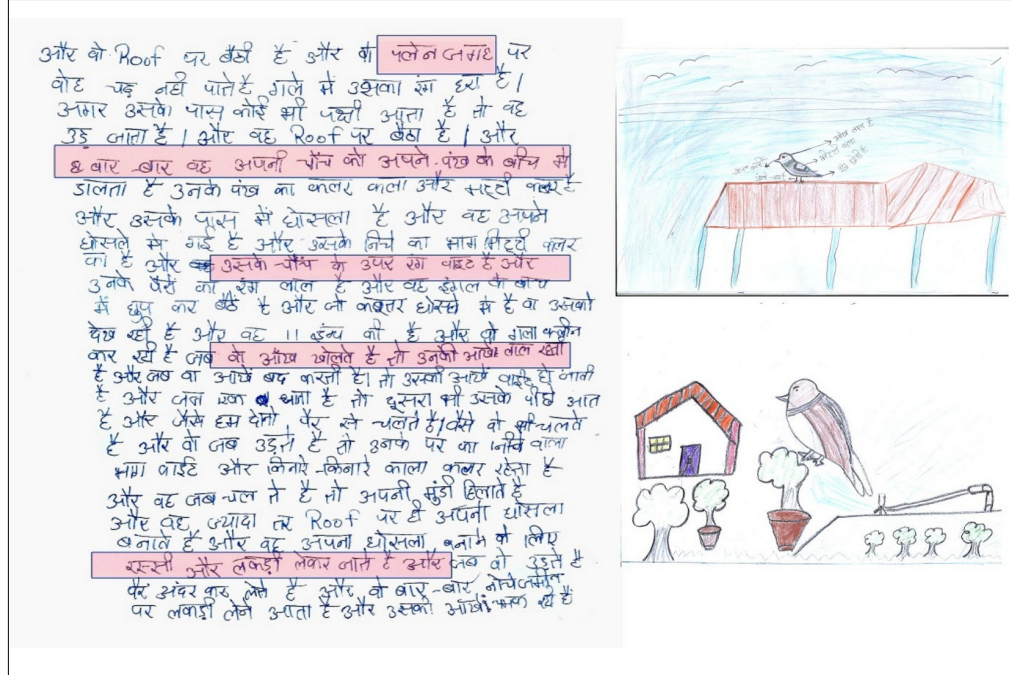 और वो Roof पर बैठी है और वो प्लेन जगह पर
वोह चढ़ नही पाते है गले मे उसका रंग हरा है।
अगर उसके पास कोई भी पक्षी आता है तो वह
उड़ जाता है। और वह Roof पर बैठा है। और
बार-बार वह अपनी चोंच को अपने पंख के बीच मे
डालता है उनके पंख का कलर काला और मट्टी कलर है
और उसके पास में घोसला है और वह अपने
घोसले मे गई है और उसके निचे का भाग मिट्टी कलर
का है और उसके चोंच के उपर रंग वाइट है और
उनके पैरो का रंग लाल है और वह डंगाल के बीच
में छुप कर बैठे है और जो कबूतर घोसले मे है वो उसको
देख रही है और वह 11 इन्च की है और वो गला क्लीन
कर रही है जब वो आँख खोलते है तो उनकी आखे लाल रखी
है और जब वो आखें बंद करती है। तो उसकी आखें वाईट हो जाती
है और जब एक जाता है तो दूसरा भी उसके पीछे आत
है और जैसे हम दोनो पैर से चलते है। वैसे वो भी चलते
है और वो जब उड़ते है तो उनके पर का निचे वाला
भाग वाईट और किनारे-किनारे काला कलर रहेता है
और वह जब चल ते है तो अपनी मुंडी हिलाते है
और वह ज्यादा तर Roof पर ही अपना घोसला
बनाते है और वह अपना घोसला बनाने के लिए
रस्सी और लकड़ी लेकर जाते है और जब वो उड़ते है
पैर अंदर कर लेते है और वो बार-बार नीचे जमीन
पर लकड़ी लेने आता है और उसकी आखें चमक रही है